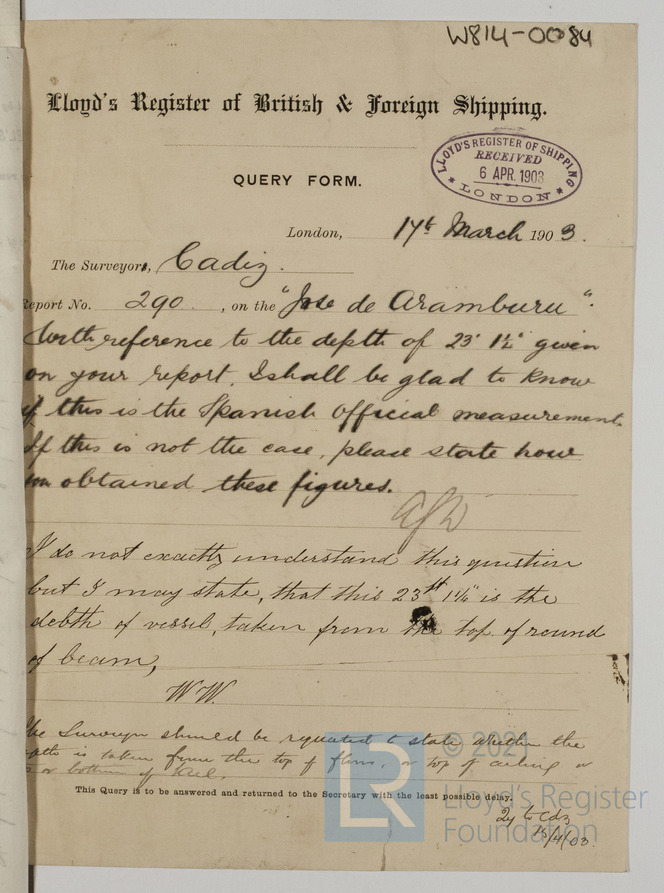 W814-0084
Lloyd's Register of British & Foreign Shipping.
LLOYD'S REGISTER OF SHIPPING
RECEIVED
6 APR. 1903
LONDON
QUERY FORM.
London, 17th March 1903.
The Surveyors, Cadiz.
Report No. 290, on the "Jose de Aramburu".
With reference to the depth of 23' 1¼" given
on your report, I shall be glad to know
if this is the Spanish Official measurement.
If this is not the case, please state how
you obtained these figures.
I do not exactly understand this question
but I may state, that this 23ft 1¼" is the
debth of vessel, taken from the top of round
of beam,
WW.
The Surveyor should be requested to state whether the
is taken from the top of floors, or top of ceiling or
or bottom of keel.
This Query is to be answered and returned to the Secretary with the least possible delay.
© 2021
Lloyd's Register
Foundation
LR
2y to Cdz
15/4/03